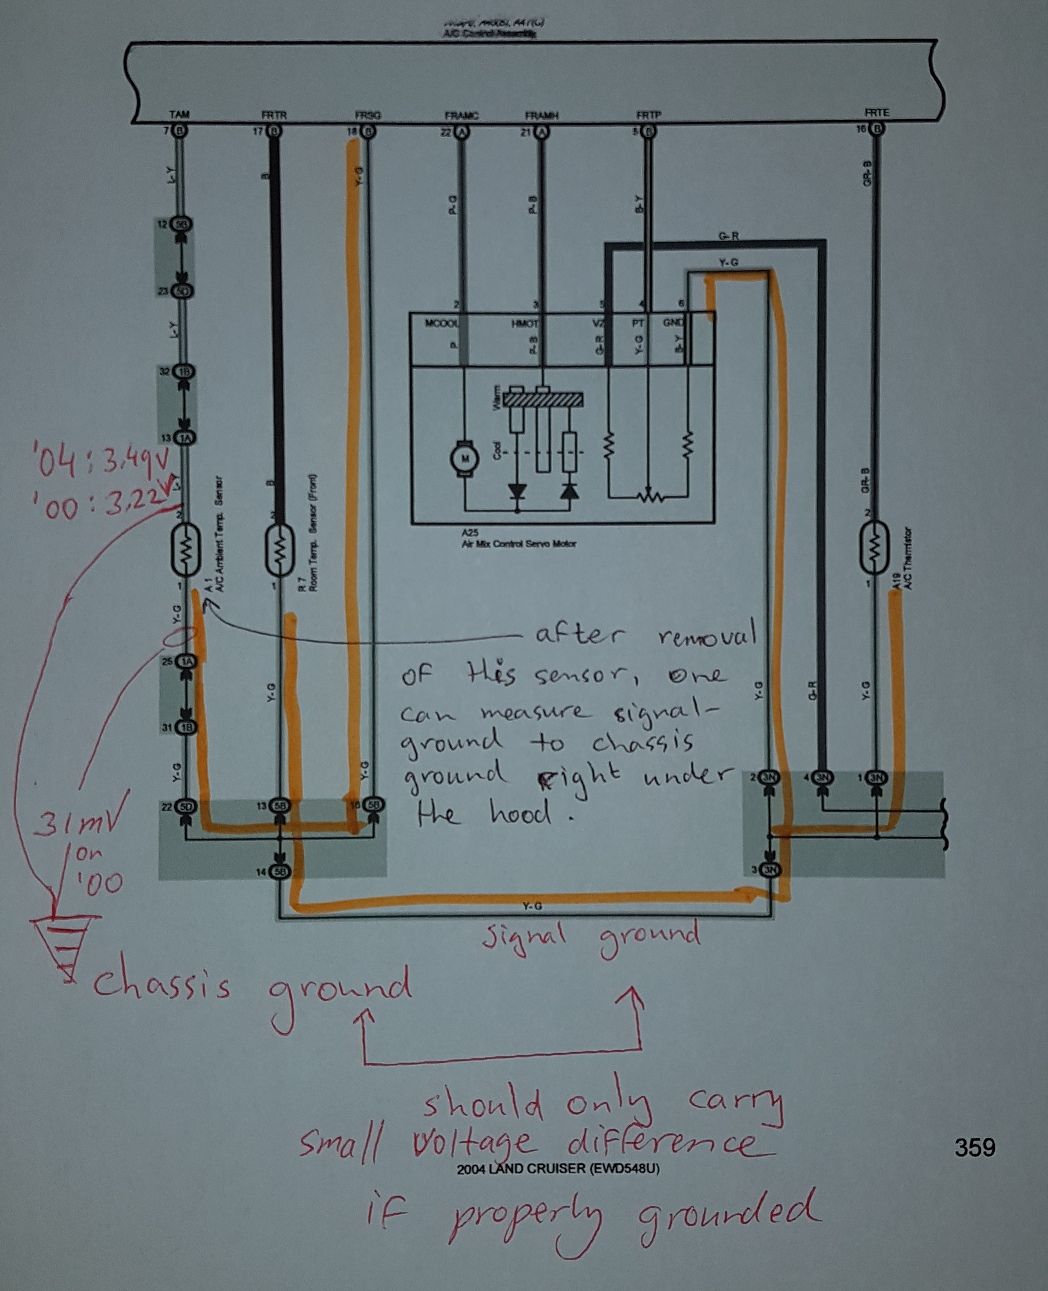 A/C Control Assembly
TAM FRTR FRSG FRAMC FRAMH FRTP FRTE
7 B 17 B 18 B 22 A 21 A 5 B 16 B
L-Y B Y-G P-G P-B B-Y GR-B
12 5B
G-R
Y-G
23 5D
2 3 5 4 6
MCOOL HMOT VZ PT GND
L-Y P P-B G-R Y-G B-Y
32 1B
Warm
Cool
13 1A
M
'04: 3.49V
'00: 3.22V
B GR-B
2 2 2
A 1
A/C Ambient Temp. Sensor
R 7
Room Temp. Sensor (Front)
A25
Air Mix Control Servo Motor
A19
A/C Thermistor
1 1 1
Y-G
after removal
of this sensor, one
can measure signal-
ground to chassis
ground right under
the hood.
25 1A
Y-G Y-G G-R Y-G
31 1B
Y-G Y-G
22 5D 13 5B 16 5B 2 3N 4 3N 1 3N
31mV
on
'00
14 5B 3 3N
Y-G
signal ground
chassis ground
should only carry
small voltage difference
359
2004 LAND CRUISER (EWD548U)
if properly grounded